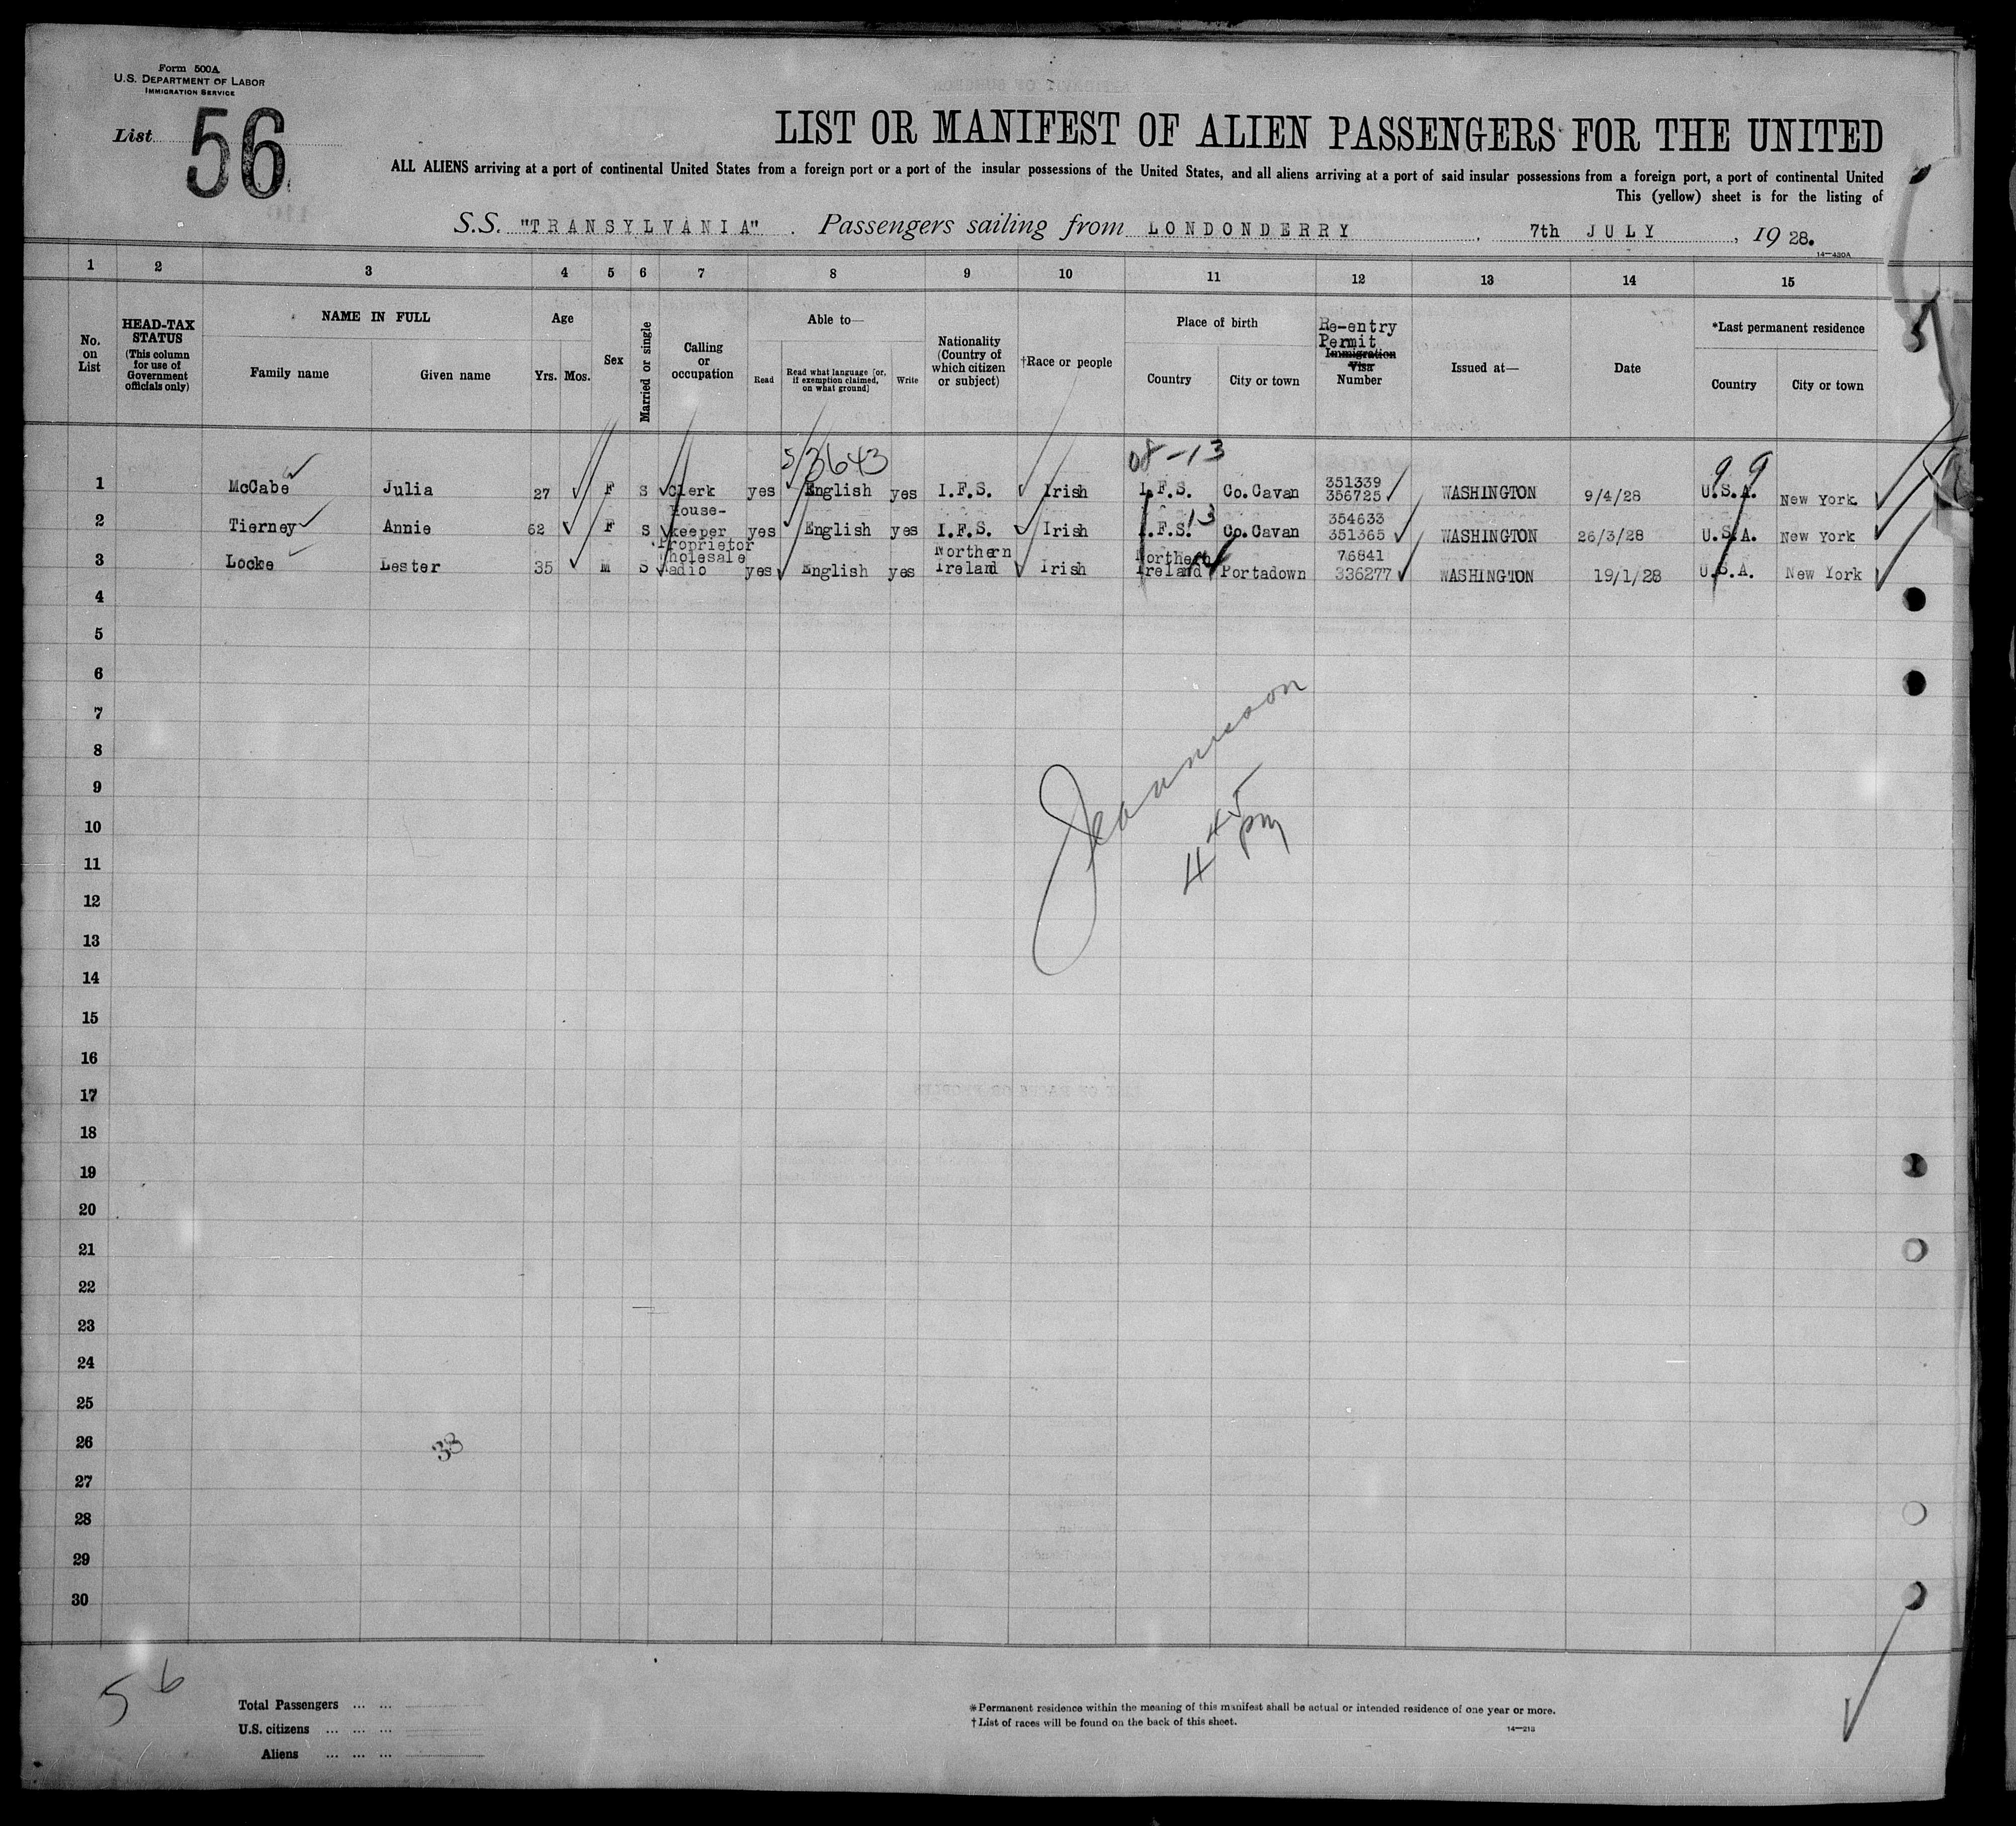 Form 500A
U.S. DEPARTMENT OF LABOR
IMMIGRATION SERVICE
List 56
LIST OR MANIFEST OF ALIEN PASSENGERS FOR THE UNITED
ALL ALIENS arriving at a port of continental United States from a foreign port or a port of the insular possessions of the United States, and all aliens arriving at a port of said insular possessions from a foreign port, a port of continental United
This (yellow) sheet is for the listing of
S.S. "TRANSYLVANIA" . Passengers sailing from LONDONDERRY , 7th JULY , 19 28.
14—430A
1 2 3 4 5 6 7 8 9 10 11 12 13 14 15
No. on List
HEAD-TAX STATUS
(This column for use of Government officials only)
NAME IN FULL
Family name
Given name
Age
Yrs. Mos.
Sex
Married or single
Calling or occupation
Able to—
Read
Read what language [or, if exemption claimed, on what ground]
Write
Nationality (Country of which citizen or subject)
†Race or people
Place of birth
Country
City or town
Re-entry Permit
Immigration Visa
Number
Issued at—
Date
*Last permanent residence
Country
City or town
5/3643
08-13
9 9
1 McCabe Julia 27 F S Clerk yes English yes I.F.S. Irish I.F.S. Co.Cavan 351339 356725 WASHINGTON 9/4/28 U.S.A. New York
13
2 Tierney Annie 62 F S House-keeper yes English yes I.F.S. Irish I.F.S. Co.Cavan 354633 351365 WASHINGTON 26/3/28 U.S.A. New York
3 Locke Lester 35 M S Proprietor holesale adio yes English yes Northern Ireland Irish Northern Ireland Portadown 76841 336277 WASHINGTON 19/1/28 U.S.A. New York
4
5
6
7
8
9
10
11
12
13
14
15
16
17
18
19
20
21
22
23
24
25
26
27
28
29
30
4 45 pm
38
56
Total Passengers ... ...
U.S. citizens ... ... ...
Aliens ... ... ...
*Permanent residence within the meaning of this manifest shall be actual or intended residence of one year or more.
†List of races will be found on the back of this sheet.
14—213